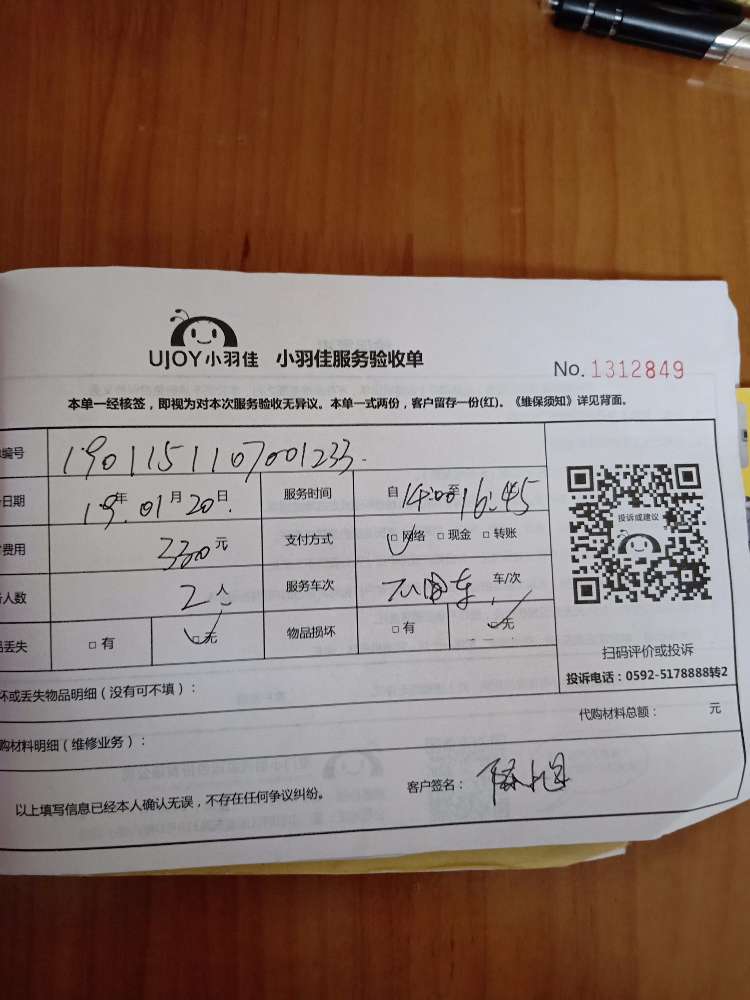 UJOY小羽佳 小羽佳服务验收单 No. 1312849
本单一经核签，即视为对本次服务验收无异议。本单一式两份，客户留存一份(红)。《维保须知》详见背面。
编号 1901151107001233.
日期 19年.01月20日. 服务时间 自14:00至16:45
费用 330元 支付方式 □网络 □现金 □转账
人数 2人 服务车次 不用车 车/次
丢失 □有 □无 物品损坏 □有 □无
投诉或建议
扫码评价或投诉
投诉电话：0592-5178888转2
坏或丢失物品明细（没有可不填）：
代购材料总额： 元
购材料明细（维修业务）：
以上填写信息已经本人确认无误，不存在任何争议纠纷。 客户签名：